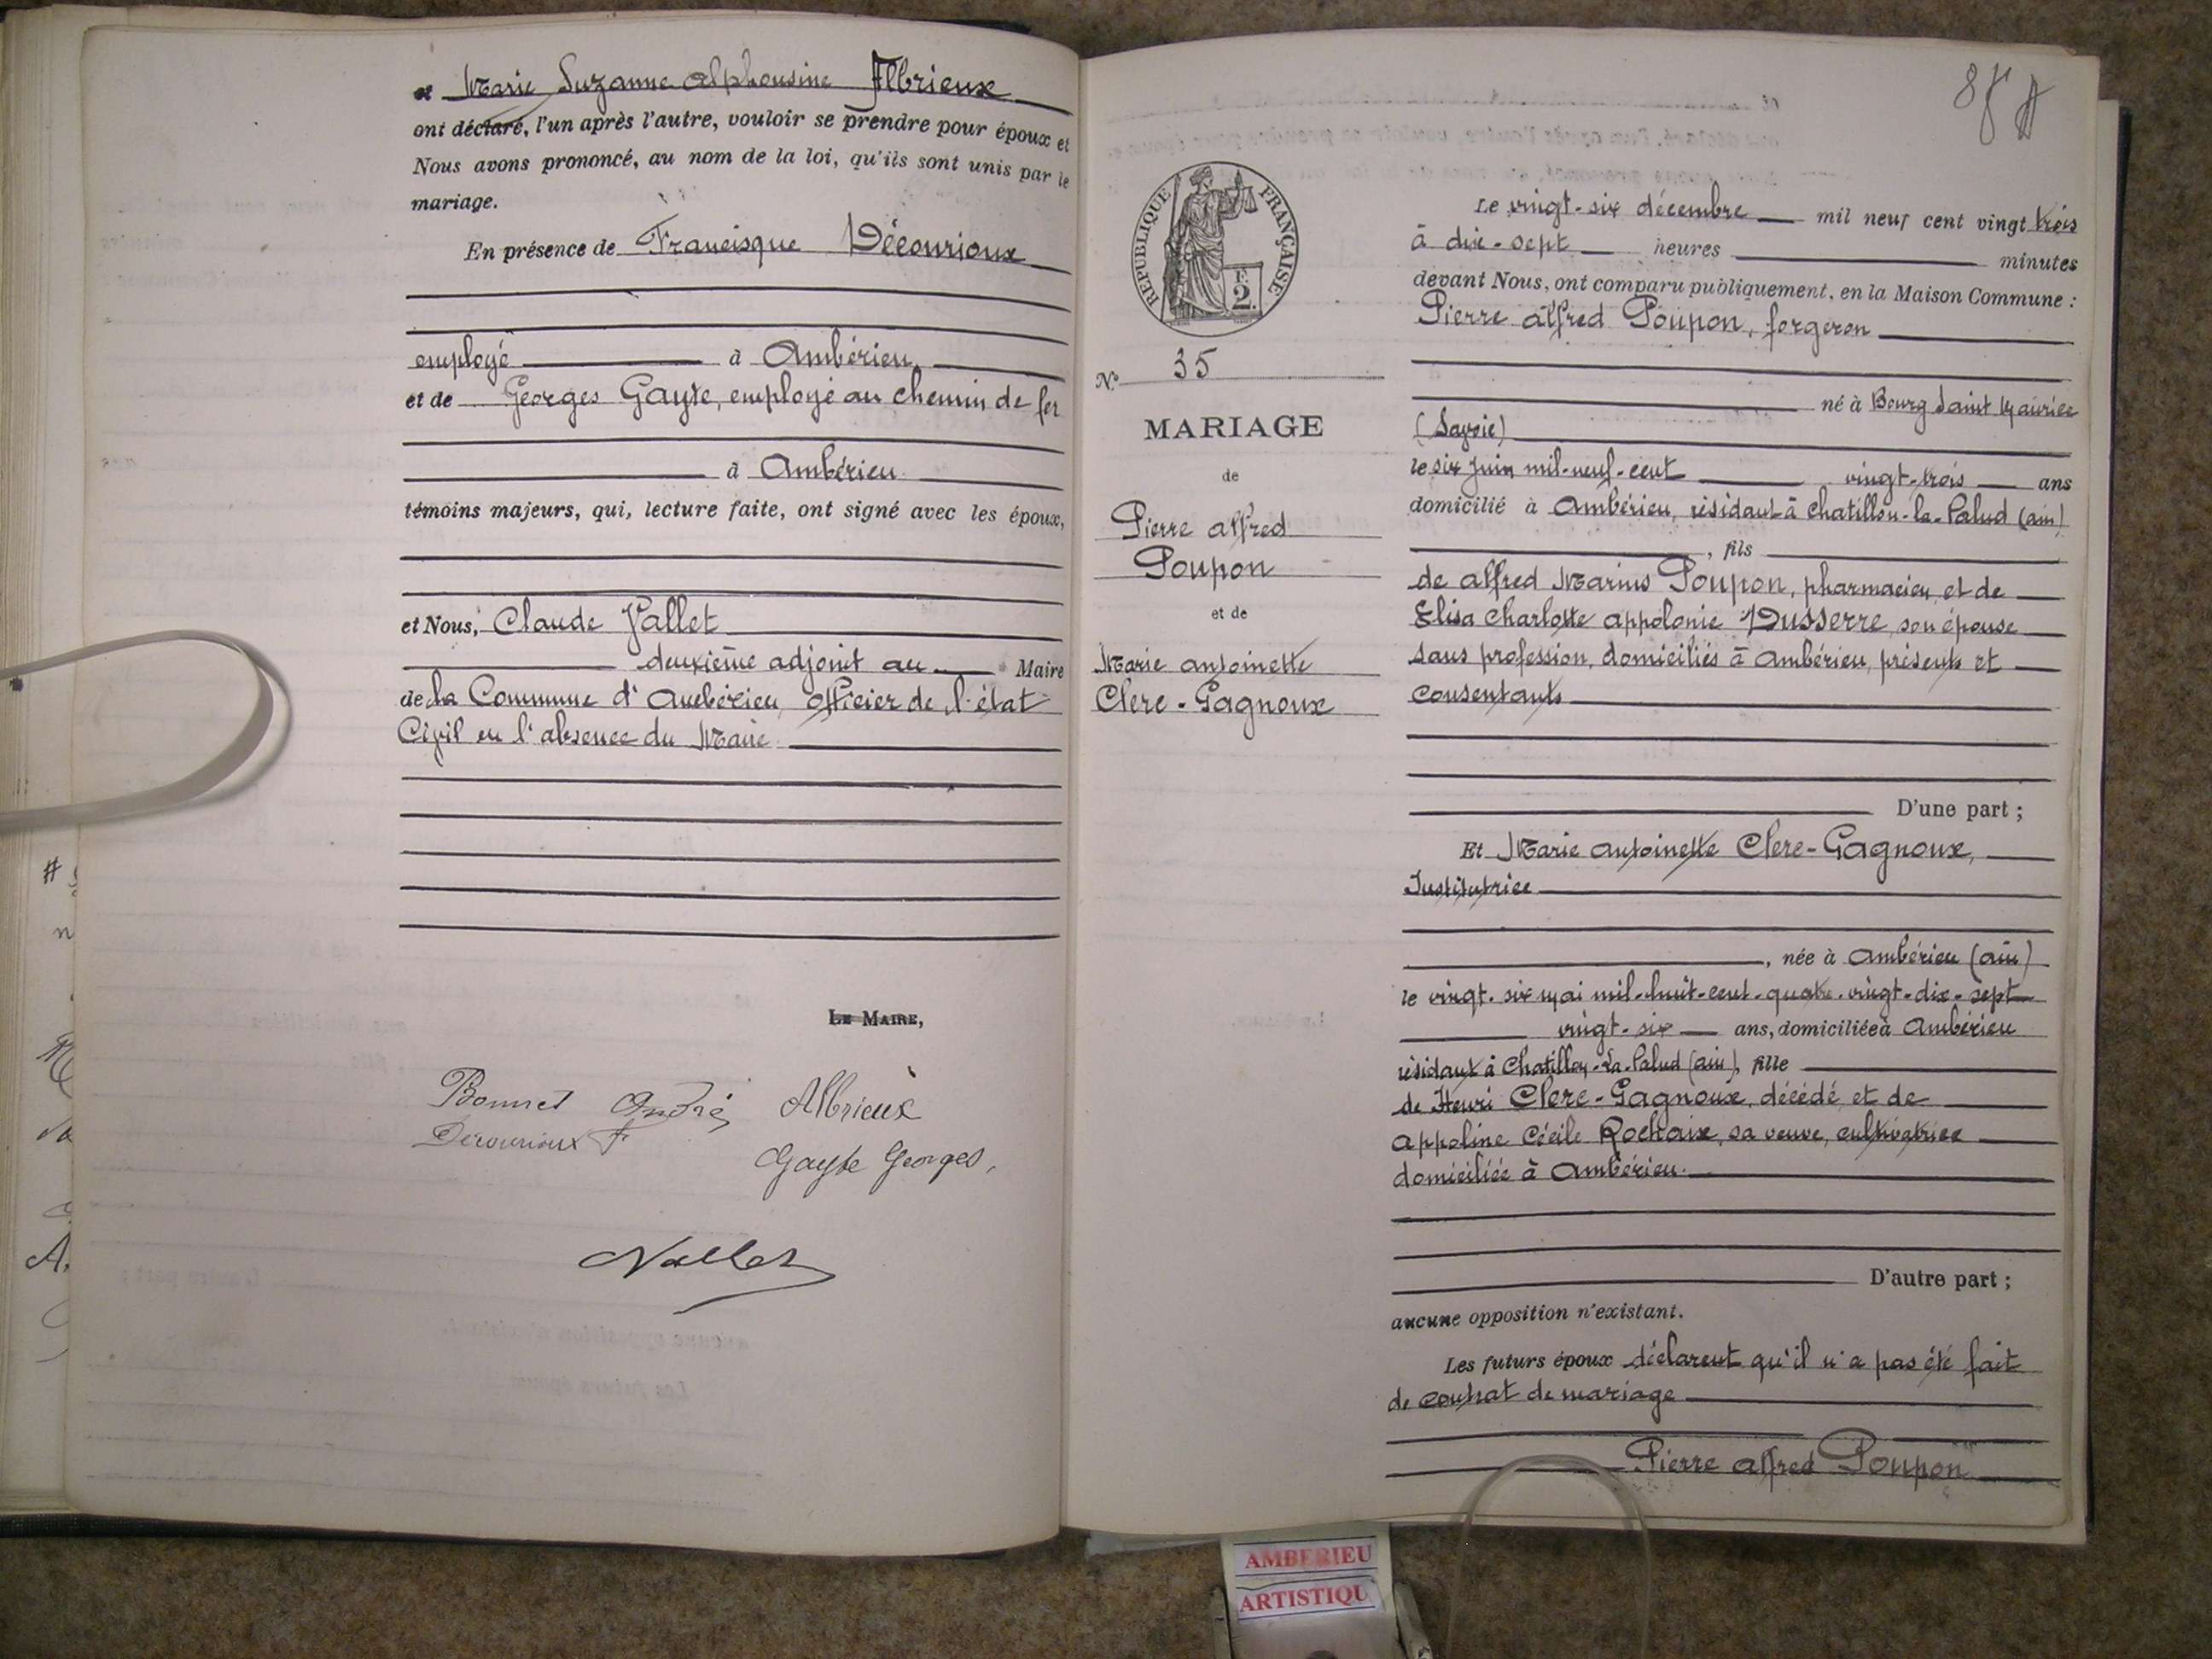 et Marie Suzanne Alphonsine Albrieux
ont déclaré, l'un après l'autre, vouloir se prendre pour époux et
Nous avons prononcé, au nom de la loi, qu'ils sont unis par le
mariage.
En présence de Francisque Décourioux
employé à Ambérieu
et de Georges Gayte, employé au chemin de fer
à Ambérieu
témoins majeurs, qui, lecture faite, ont signé avec les époux,
et Nous, Claude Vallet
deuxième adjoint au Maire
de la Commune d'Ambérieu, officier de l'état
Civil en l'absence du Maire
LE MAIRE,
Bonnet André Albrieux
Décourioux F
Gayte Georges,
Vallet
RÉPUBLIQUE FRANÇAISE
2
N° 35
MARIAGE
de
Pierre Alfred
Poupon
et de
Marie Antoinette
Clerc-Gagnoux
Le vingt-six décembre mil neuf cent vingt trois
à dix-sept heures minutes
devant Nous, ont comparu publiquement, en la Maison Commune :
Pierre Alfred Poupon, forgeron
né à Bourg Saint Maurice
(Savoie)
le six Juin mil-neuf-cent vingt-trois ans
domicilié à Ambérieu, résidant à Chatillon-la-Palud (ain)
, fils
de Alfred Marius Poupon, pharmacien, et de
Elisa Charlotte Appolonie Dusserre, son épouse
sans profession, domiciliés à Ambérieu, présents et
consentants
D'une part ;
Et Marie Antoinette Clerc-Gagnoux,
Institutrice
, née à Ambérieu (ain)
le vingt-six mai mil-huit-cent-quatre-vingt-dix-sept
vingt-six ans, domiciliée à Ambérieu
résidant à Chatillon-la-Palud (ain), fille
de Henri Clerc-Gagnoux, décédé et de
Appoline Cécile Rochaix, sa veuve, cultivatrice
domiciliée à Ambérieu.
D'autre part ;
aucune opposition n'existant.
Les futurs époux déclarent qu'il n'a pas été fait
de contrat de mariage
Pierre Alfred Poupon
AMBERIEU
ARTISTIQU